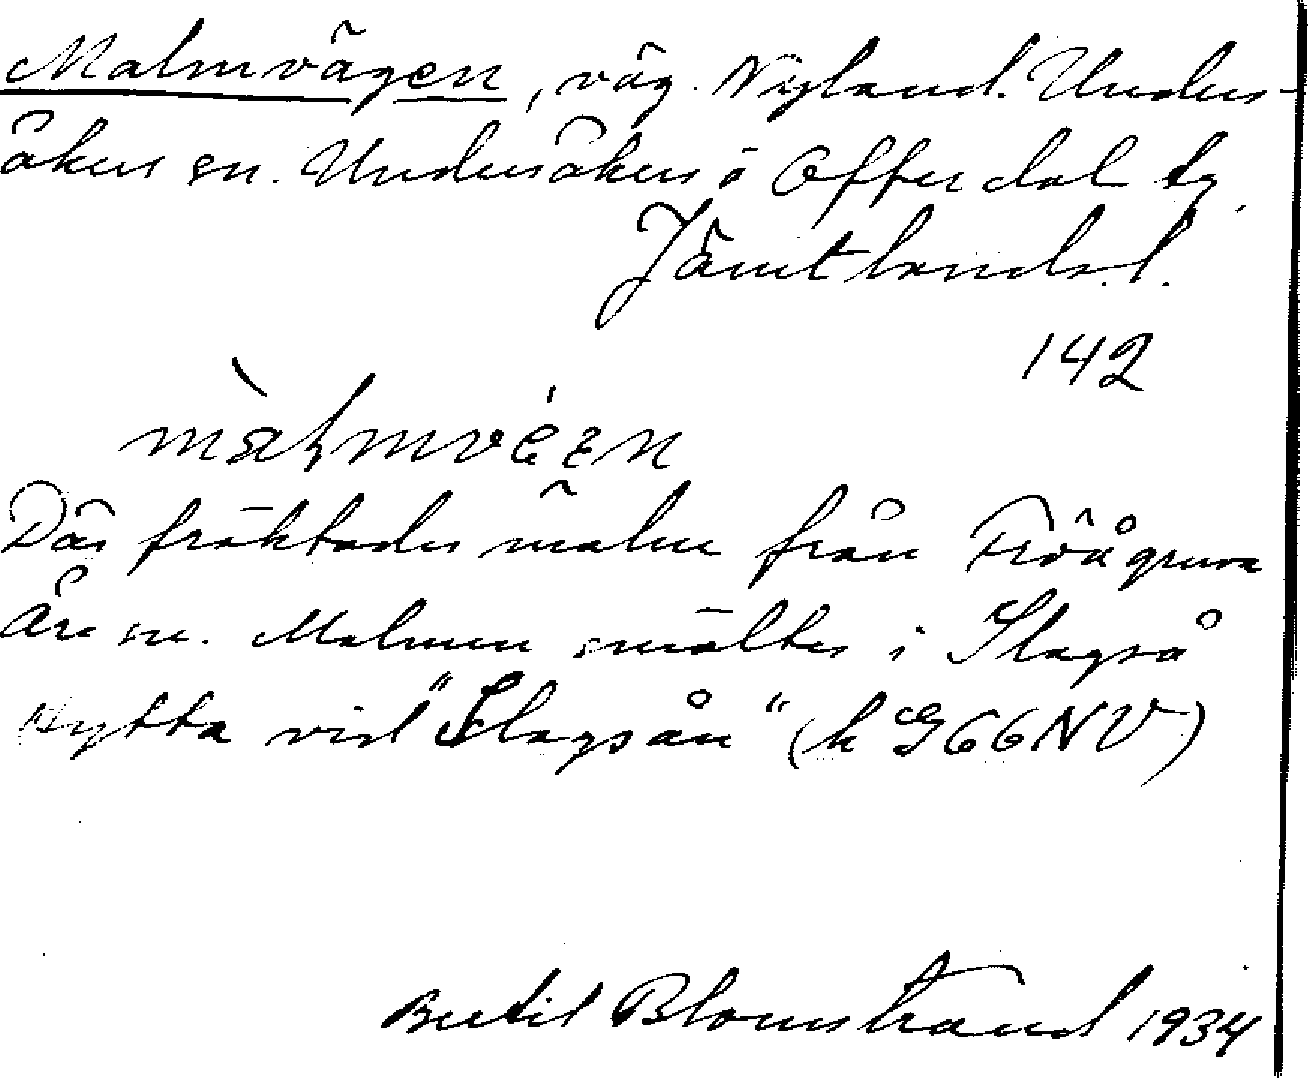 Malmvägen, väg. Nyland. Unders-
åkers sn. Undersåkers o Offerdal tg.
Jämtlands l.
142
Där fraktades malm från Fröå gruva
Åre sn. Malmen smältes i Slagså
Hytta vid "Slagsån" (k G66NV)
Bertil Blomstrand 1934